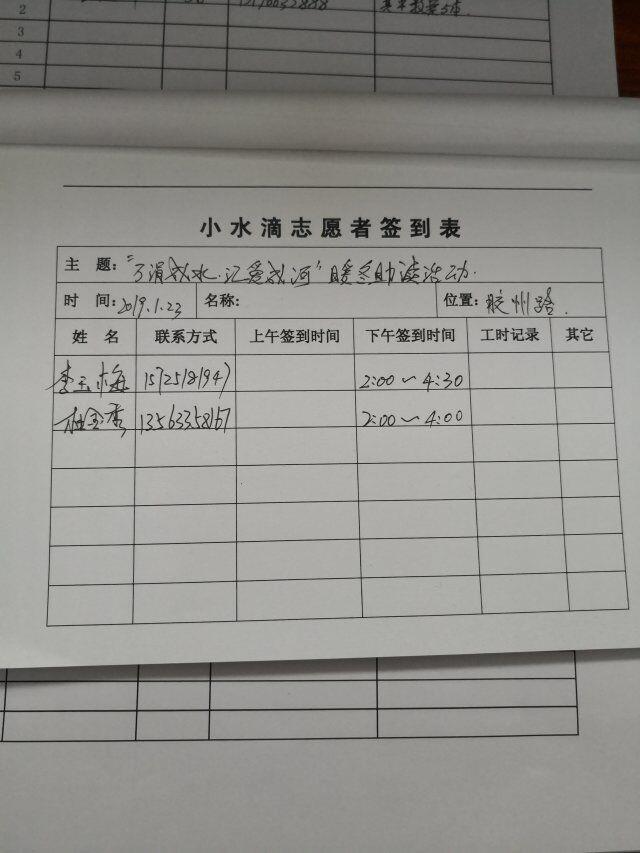 2
3
4
5
小水滴志愿者签到表
主 题：“了涓成水·汇爱成河”暖冬助读活动.
时 间：2019.1.23 名称： 位置：胶州路.
姓 名 联系方式 上午签到时间 下午签到时间 工时记录 其它
李玉梅 15725181947 2:00～4:30
13563358167 2:00～4:00